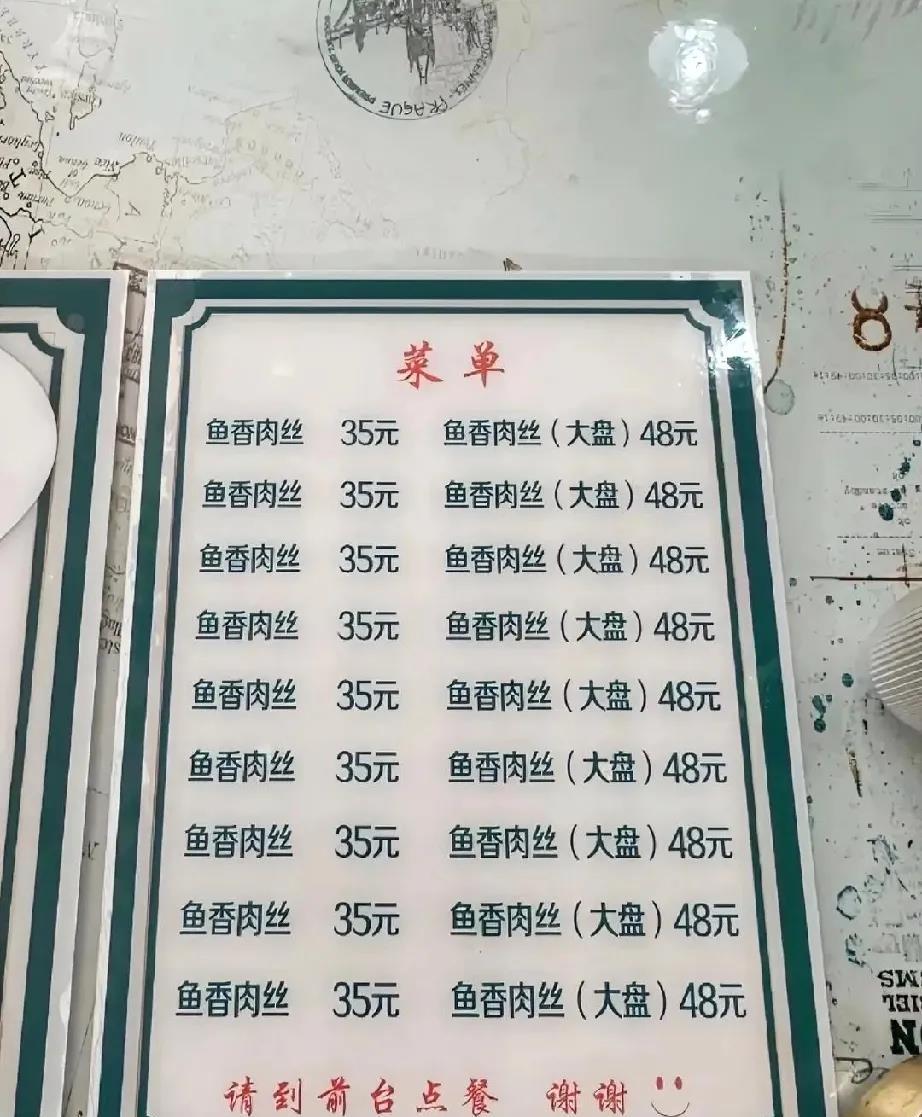 PRAGUE
菜单
鱼香肉丝 35元 鱼香肉丝（大盘）48元
鱼香肉丝 35元 鱼香肉丝（大盘）48元
鱼香肉丝 35元 鱼香肉丝（大盘）48元
鱼香肉丝 35元 鱼香肉丝（大盘）48元
鱼香肉丝 35元 鱼香肉丝（大盘）48元
鱼香肉丝 35元 鱼香肉丝（大盘）48元
鱼香肉丝 35元 鱼香肉丝（大盘）48元
鱼香肉丝 35元 鱼香肉丝（大盘）48元
鱼香肉丝 35元 鱼香肉丝（大盘）48元
请到前台点餐 谢谢